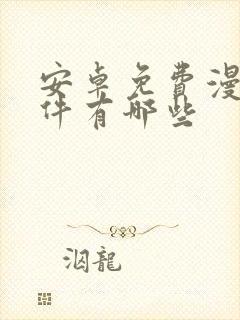 安卓免費漫
件有哪些
洇龍